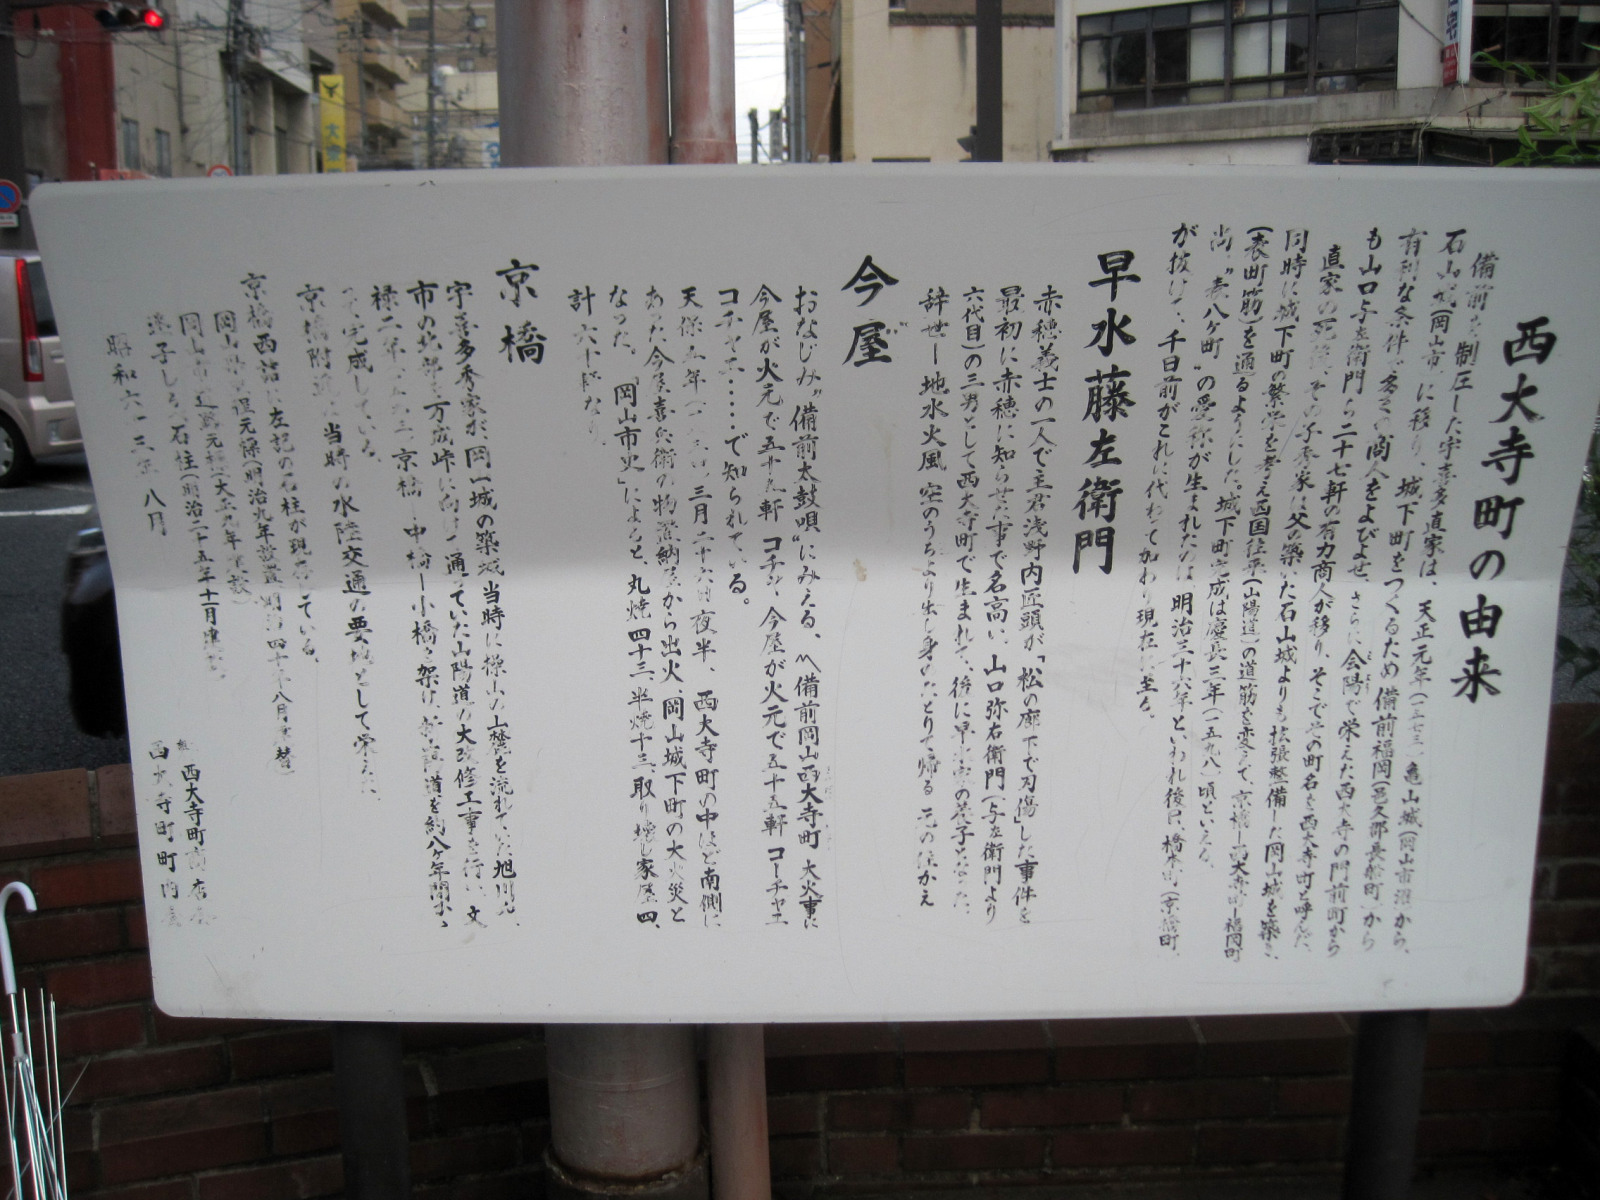 西大寺町の由来
備前を制圧した宇喜多直家は、天正元年(一五七三)亀山城(岡山市沼)から、
石山城(岡山市)に移り、城下町をつくるため備前福岡(邑久郡長船町)から
有利な条件で多くの商人をよびよせ、さらに会陽で栄えた西大寺の門前町から
も山口与左衛門ら二十七軒の有力商人が移り、そこでその町名を西大寺町と呼んだ。
直家の死後、その子秀家は父の築いた石山城よりも拡張整備した岡山城を築き、
同時に城下町の繁栄を考え西国往来(山陽道)の道筋を変えて、京橋ー西大寺町ー福岡町
(表町筋)を通るようにした。城下町完成は慶長三年(一五九八)頃といえる。
尚、"表八ヶ町"の愛称が生まれたのは明治三十六年といわれ後に、橋本町(京橋町)
が抜けて、千日前がこれに代わって加わり現在に至る。
早水藤左衛門
赤穂義士の一人で主君浅野内匠頭が「松の廊下で刃傷」した事件を
最初に赤穂に知らせた事で名高い、山口弥右衛門(与左衛門より
六代目)の三男として西大寺町で生まれて、後に早水家の養子となった。
辞世ー地水火風 空のうちより出し身の たどりて帰る 元の住かえ
今屋
おなじみ"備前太鼓唄"にみえる、〽備前岡山西大寺町 大火事に
今屋が火元で五十五軒 コチャ、今屋が火元で五十五軒 コーチャエ
コチャエ……で知られている。
天保五年 三月二十六日夜半、西大寺町の中ほど南側に
あった今屋喜兵衛の物置納屋から出火、岡山城下町の大火災と
なった。「岡山市史」によると、丸焼四十三、半焼十三、取り壊し家屋四、
計六十軒なり。
京橋
宇喜多秀家が岡山城の築城当時に操山の山麓を流れていた旭川が、
市の北部を万成峠に向けて通っていた山陽道の大改修工事を行い、文
禄二年 京橋ー中橋ー小橋を架け、新設道を約八ヶ年間か
って完成している。
京橋附近は当時の水陸交通の要地として栄えた。
京橋西詰に左記の石柱が現存している。
岡山県里程元標(明治九年設置、明治四十年八月建替)
岡山市道路元標(大正九年 )
迷子しるべ石柱(明治二十五年十一月建立)
昭和六十三年 八月
西大寺町商店会
西大寺町町内会